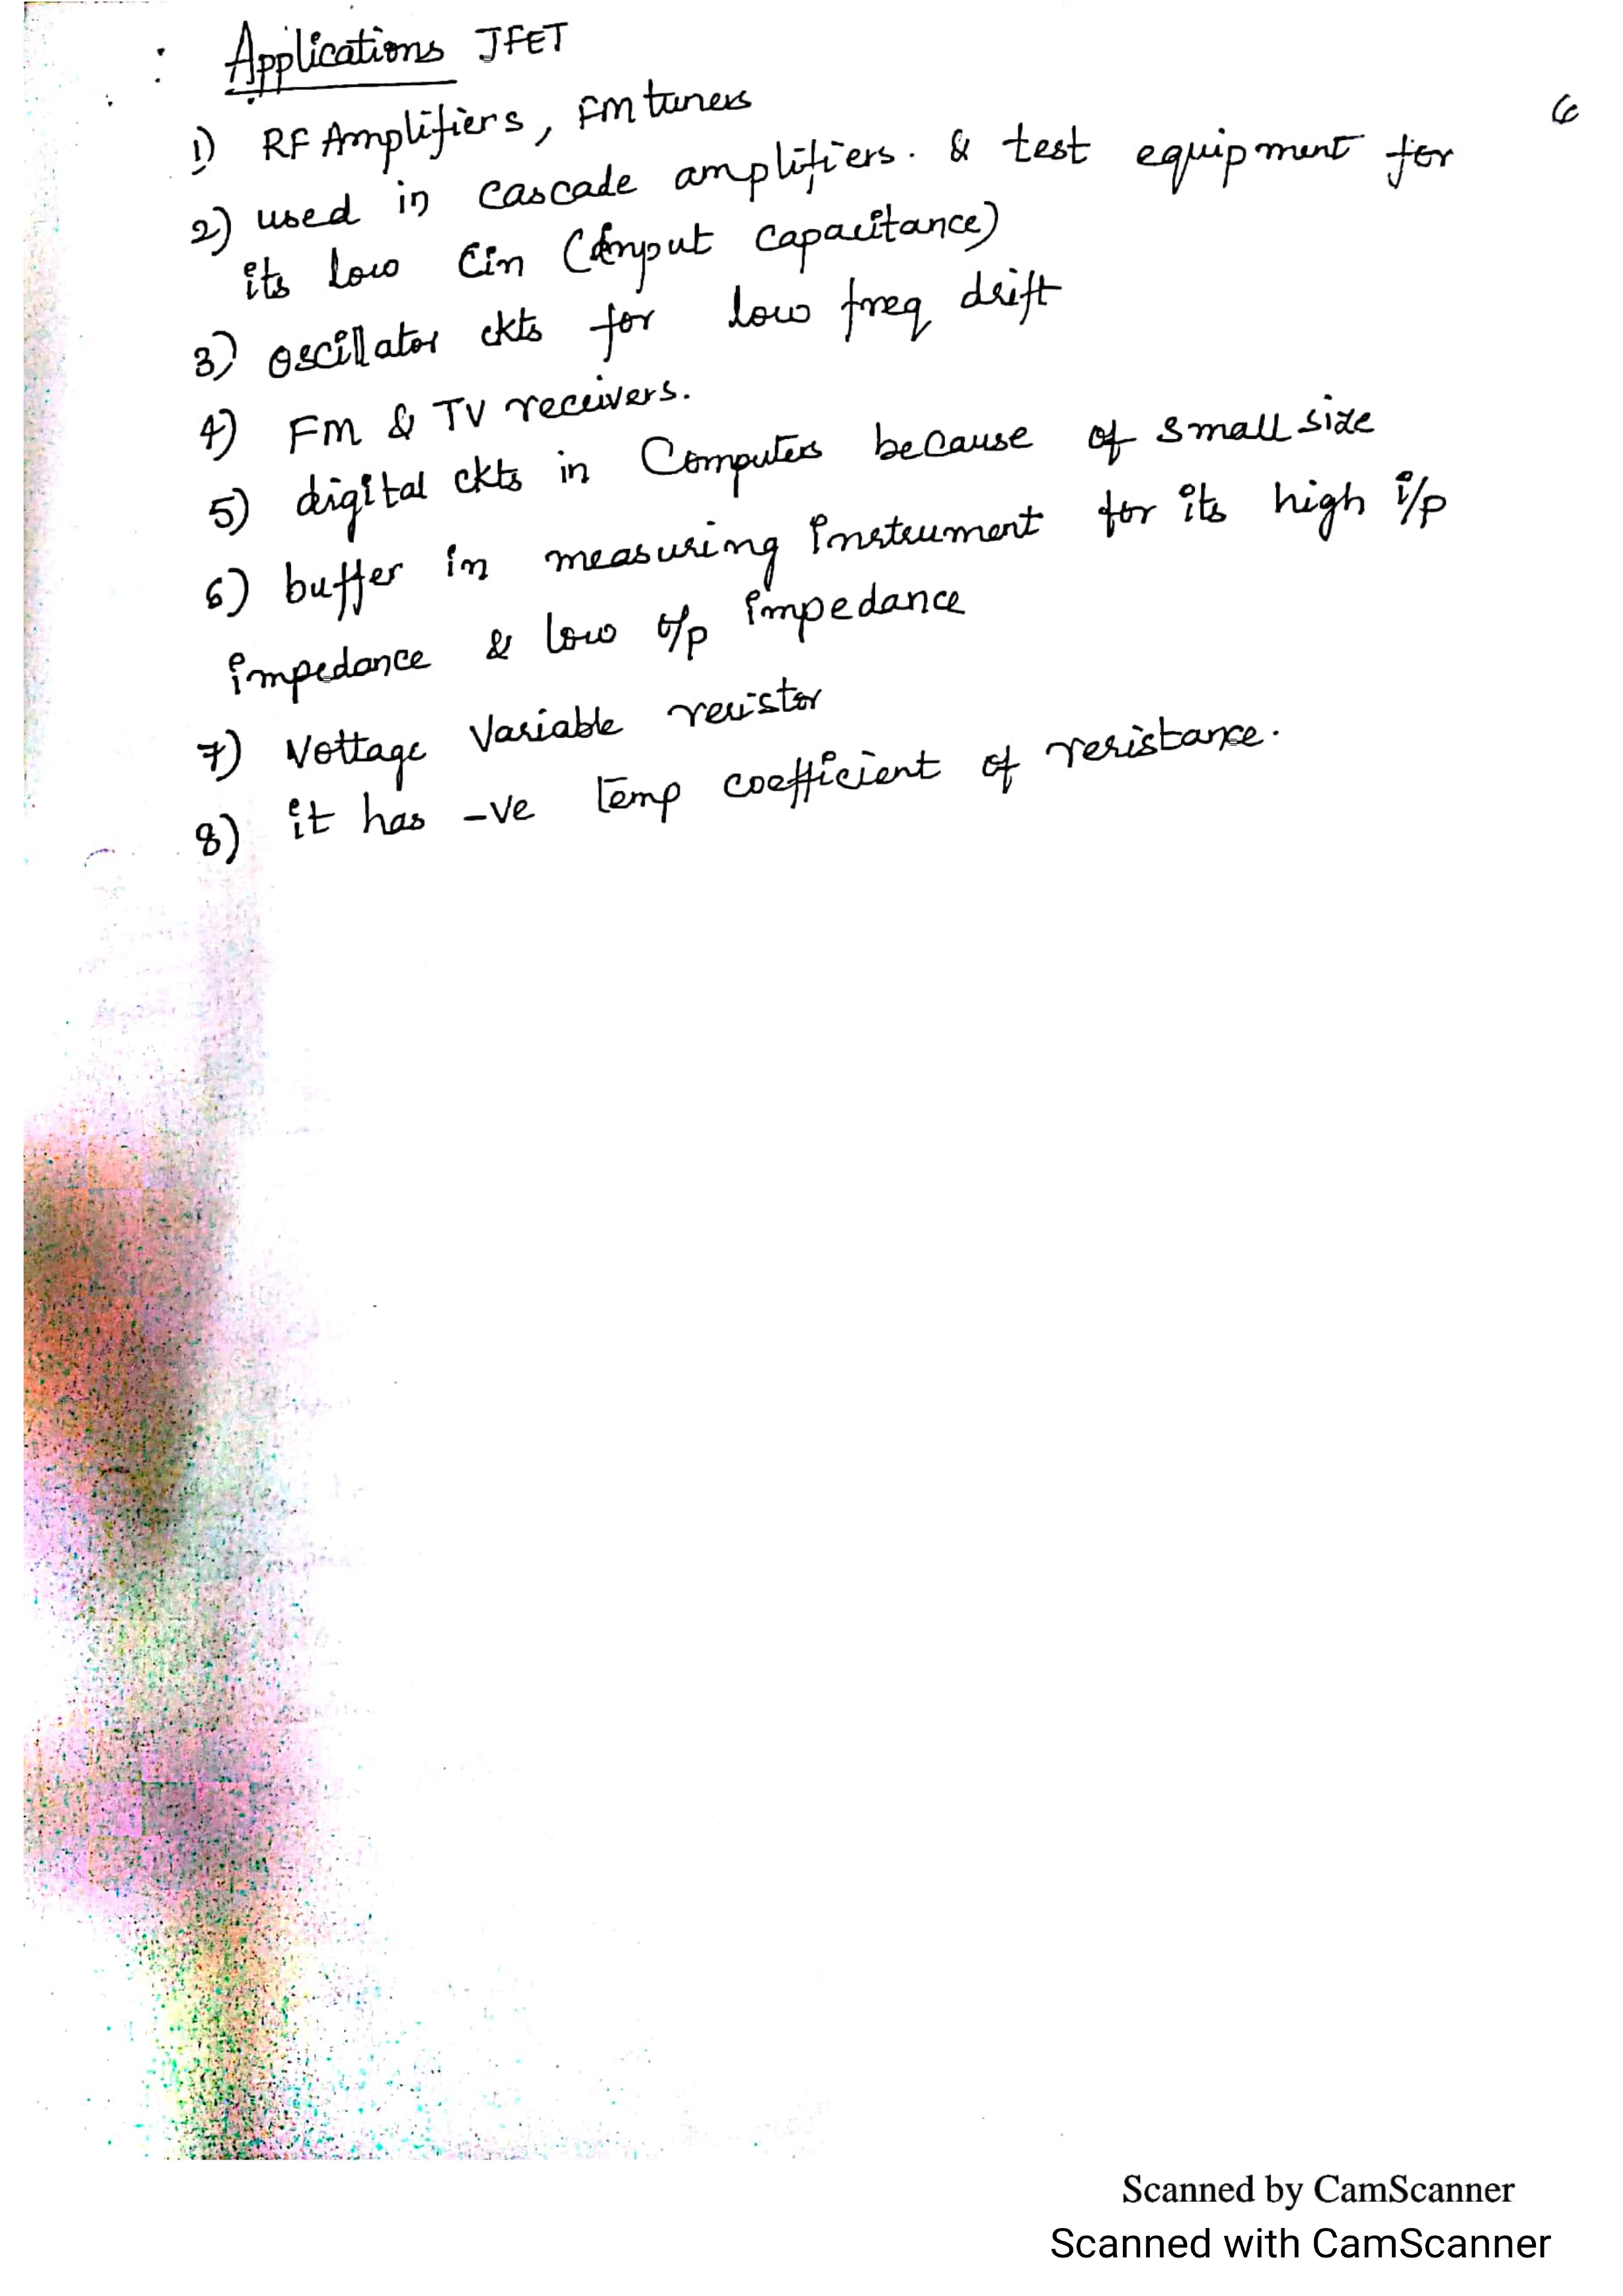 : Applications JFET
6
1) RF Amplifiers, FM tuners
2) used in cascade amplifiers. & test equipment for
its low Cin (Input capacitance)
3) oscillator ckts for low freq drift
4) FM & TV receivers.
5) digital ckts in Computers because of small size
6) buffer in measuring instrument for its high i/p
impedance & low o/p impedance
7) Voltage Variable resistor
8) it has -ve Temp coefficient of resistance.
Scanned by CamScanner
Scanned with CamScanner